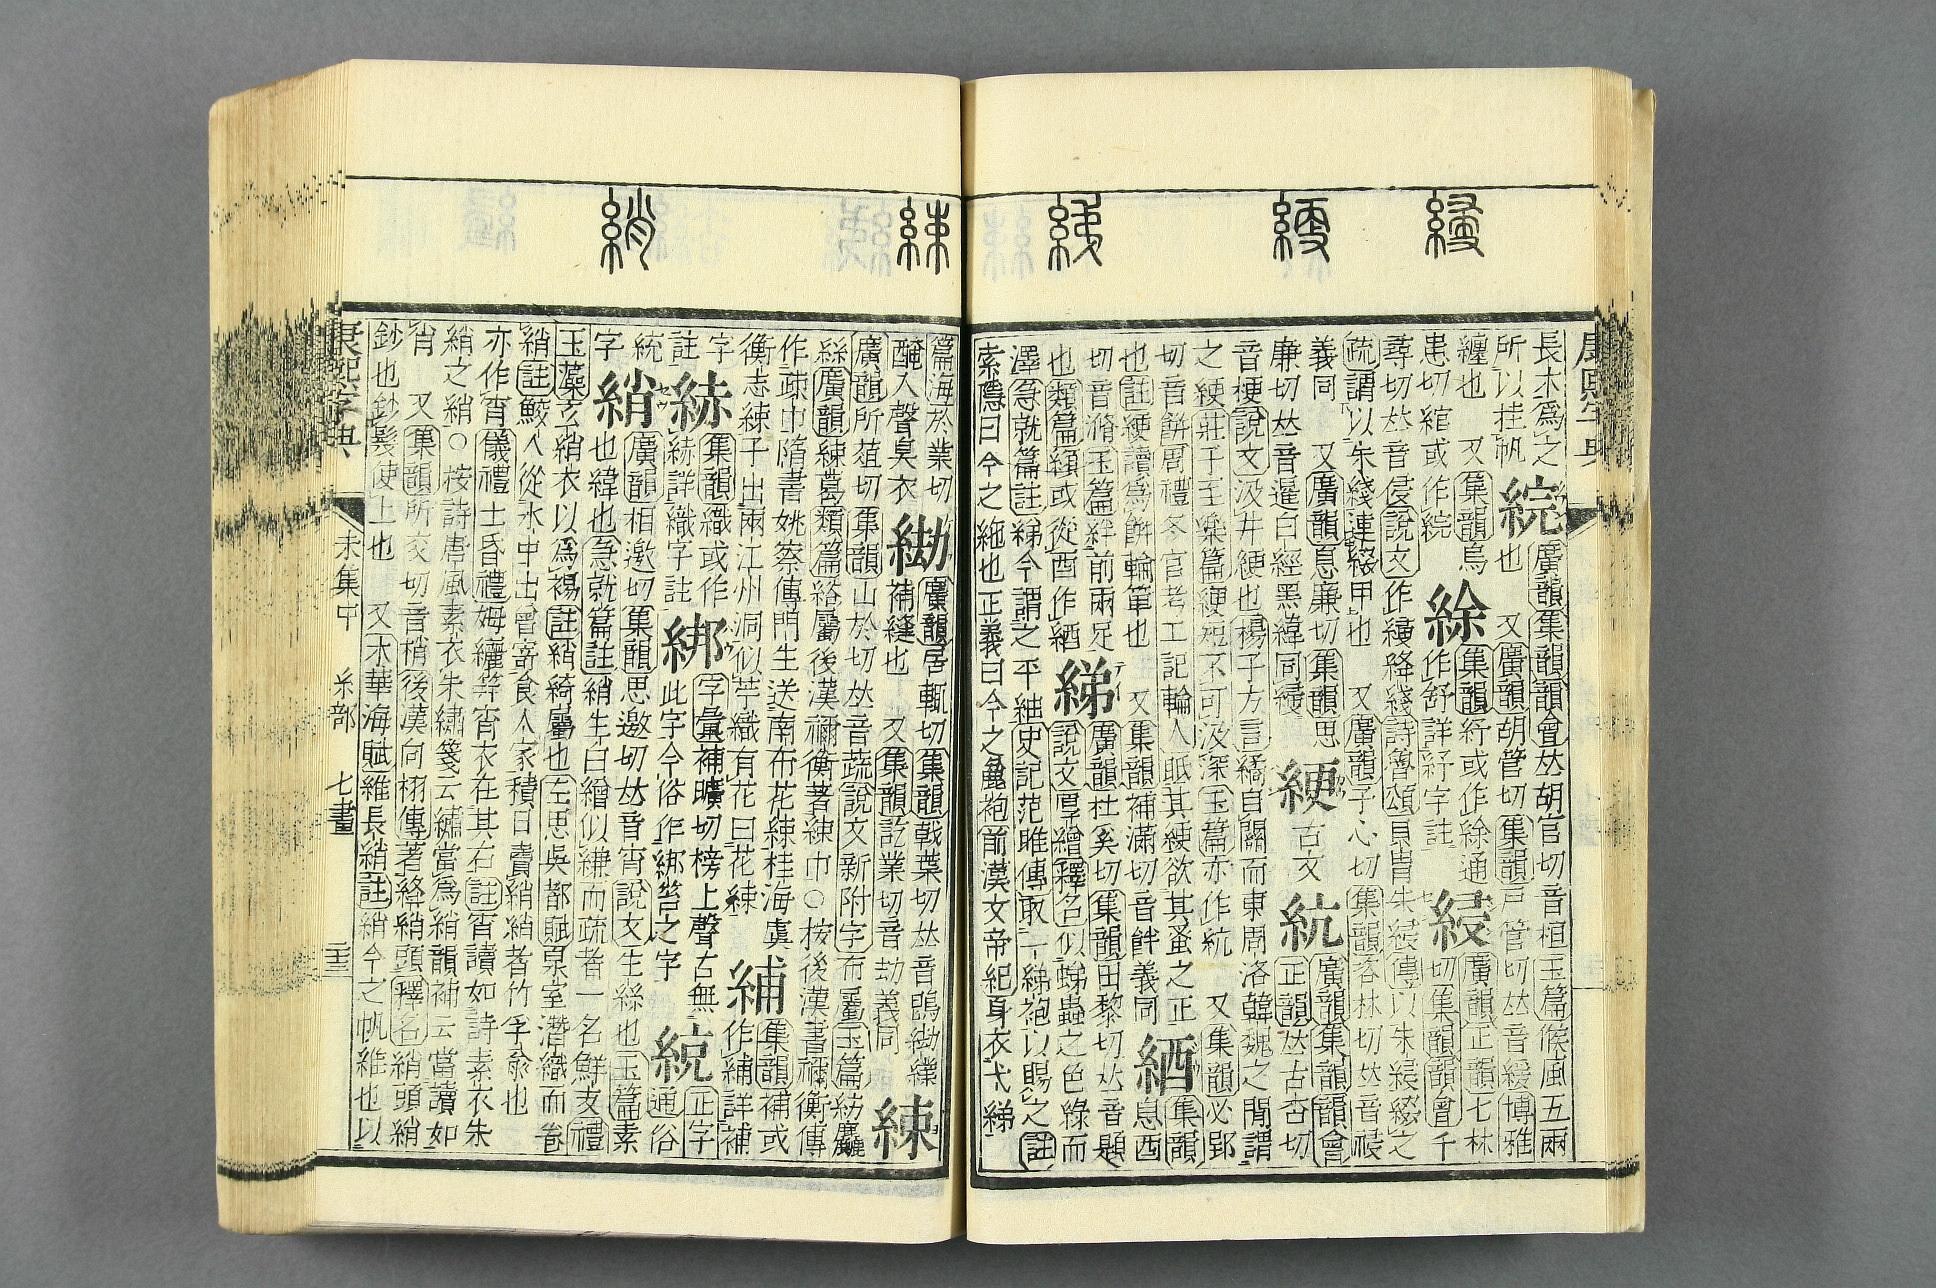 康熙字典
長木爲之
所以挂帆 綄 廣韻集韻韻會𠀤胡官切音桓玉篇候風五兩
也 又廣韻胡管切集韻戸管切𠀤音緩博雅
纏也 又集韻烏
患切綰或作綄 䋡 集韻紓或作䋡通
作舒詳紓字註 綅 廣韻正韻七林
切集韻韻會千
尋切𠀤音侵說文
作綅絳綫詩魯頌貝胄朱綅傳以朱綅綴之
疏謂以朱綫連綴甲也 又廣韻子心切集韻咨林切𠀤音祲
義同 又廣韻息廉切集韻思
廉切𠀤音暹白經黑緯同綅 綆 古文 統 廣韻集韻韻會
正韻𠀤古杏切
音梗說文汲井綆也揚子方言繘自關而東周洛韓魏之閒謂
之綆莊子至樂篇綆短不可汲深玉篇亦作統 又集韻必郢
切音餠周禮冬官考工記輪人眡其綆欲其蚤之正
也註綆讀爲餠輪箄也 又集韻補滿切音䉽義同 綇 集韻
息酉
切音滫玉篇絆前兩足
也類篇䋺或從酉作綇 綈 廣韻杜奚切集韻田黎切𠀤音題
說文厚繒釋名似蝭蟲之色綠而
澤急就篇註綈今謂之平紬史記范雎傳取一綈袍以賜之註
索隱曰今之絁也正義曰今之麤袍前漢文帝紀身衣弋綈
篇海於業切
醃入聲臭衣 䋜 廣韻居輒切集韻戟葉切𠀤音
補縫也 又集韻訖業切音劫義同 綀
廣韻所葅切集韻山於切𠀤音蔬說文新附字布屬玉篇紡麤
絲廣韻綀葛類篇綌屬後漢禰衡著綀巾○按後漢書禰衡傳
作疎巾隋書姚察傳門生送南布花綀桂海虞
衡志綀子出兩江州洞似苧織有花曰花綀 䋠 集韻補或
作䋠詳補
字
註 䋐 集韻織或作
䋐詳織字註 綁 字彙補曠切榜上聲古無
此字今俗作綁笞之字 綂 正字
通俗
統
字 綃 廣韻相邀切集韻思邀切𠀤音宵說文生絲也玉篇素
也緯也急就篇註綃生白繒似縑而疏者一名鮮支禮
玉藻玄綃衣以爲裼註綃綺屬也左思吳都賦泉室潛織而卷
綃註鮫人從水中出曾寄食人家積日賣綃綃者竹孚兪也
亦作宵儀禮士昏禮姆纚笄宵衣在其右註宵讀如詩素衣朱
綃之綃○按詩唐風素衣朱繡箋云繡當爲綃韻補云當讀如
宵 又集韻所交切音梢後漢向栩傳著絳綃頭釋名綃頭綃
鈔也鈔髮使上也 又木華海賦維長綃註綃今之帆維也以
康熙字典 未集中 糸部 七畫